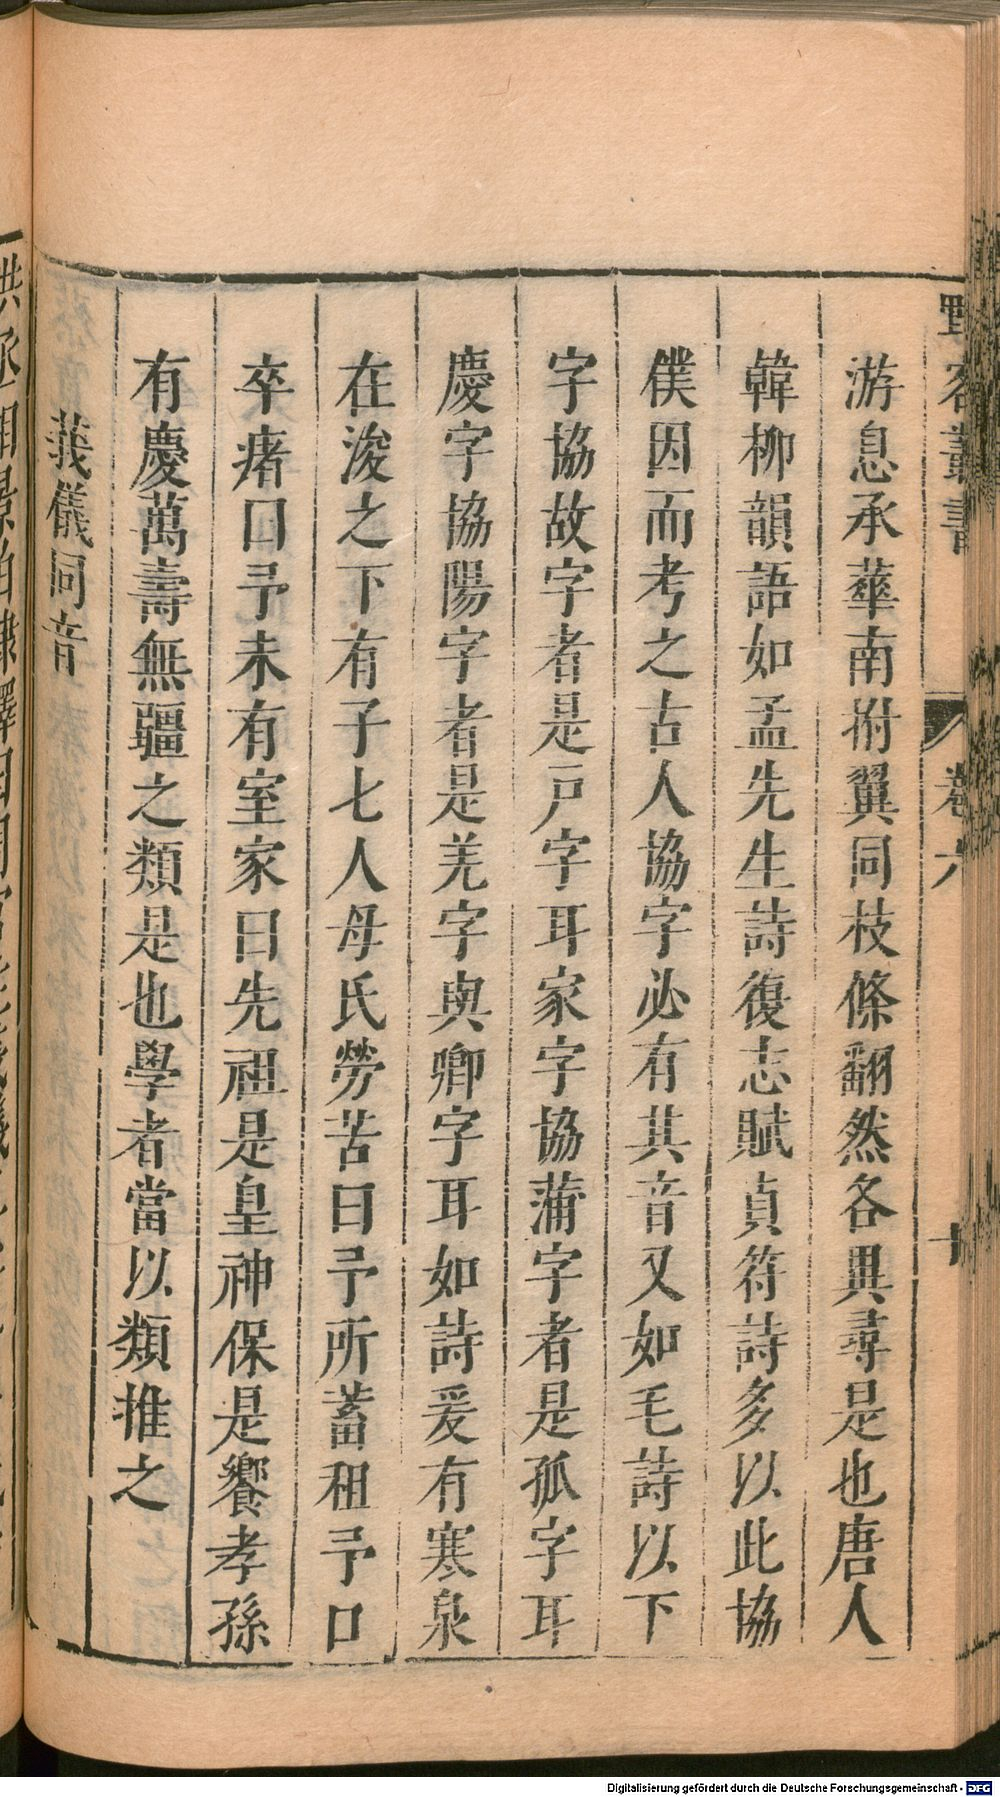 野客叢書 卷六 十
游息承蕚南拊翼同枝條翻然各異尋是也唐人
韓柳韻語如孟先生詩復志賦貞符詩多以此協
僕因而考之古人協字必有其音又如毛詩以下
字協故字者是戸字耳家字協蒲字者是孤字耳
慶字協陽字者是羌字與卿字耳如詩爰有寒泉
在浚之下有子七人母氏勞苦曰予所蓄租予口
卒瘏口予未有室家曰先祖是皇神保是饗孝孫
有慶萬壽無疆之類是也學者當以類推之
義儀同音
Digitalisierung gefördert durch die Deutsche Forschungsgemeinschaft - DFG